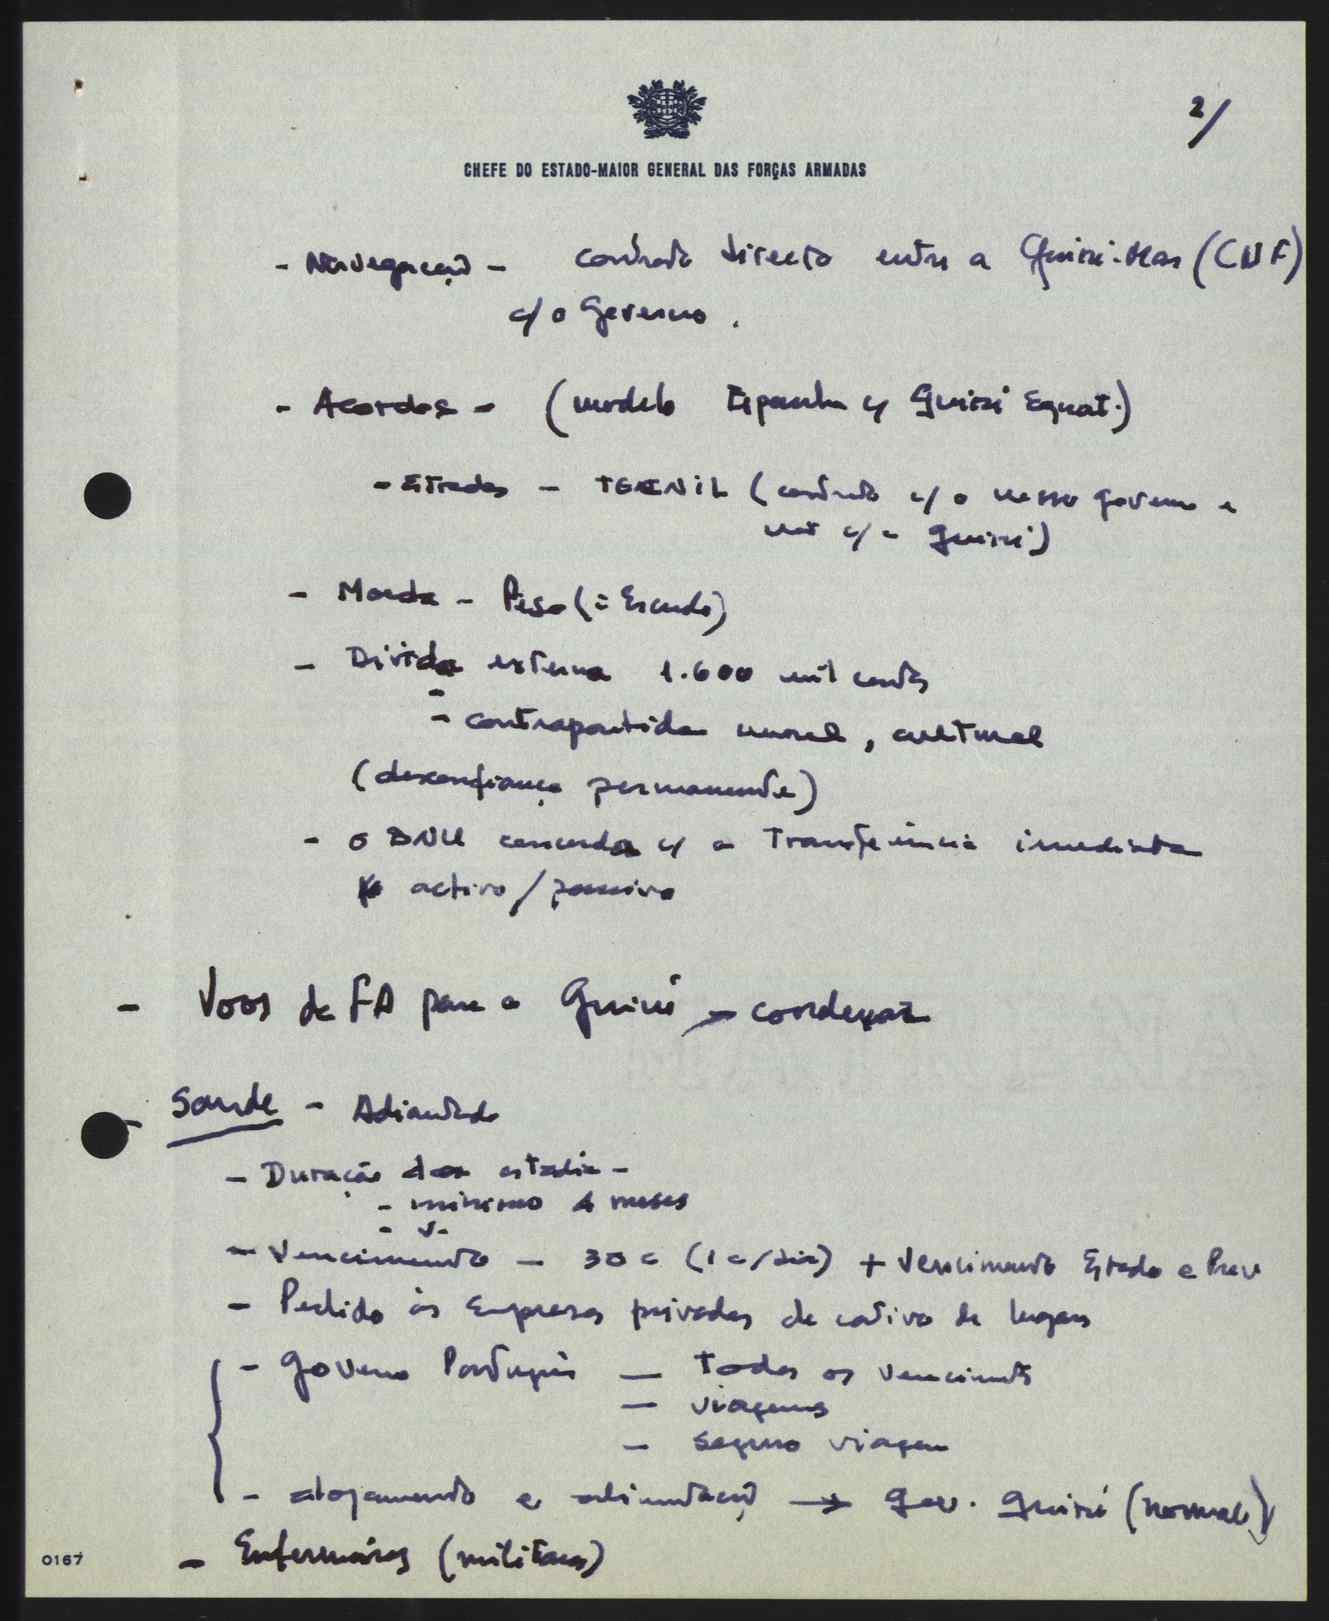 2/
CHEFE DO ESTADO-MAIOR GENERAL DAS FORÇAS ARMADAS
- Navegação - contrato directo entre a Guiné-Mar (CNF)
c/ o Governo.
- Acordos - (modelo Espanha c/ Guiné Equat.)
- Estradas - TECNIL (contrato c/ o nosso governo e
não c/ a Guiné)
- Moeda - Peso (= Escudo)
- Dívida externa 1.600 mil contos
-
- contrapartida moral, cultural
(desconfiança permanente)
- o BNU concorda c/ a Transferência imediata
activo/passivo
- Voos da FA para a Guiné → coordenação
- Saude - Adiantado
- Duração da estadia -
- mínimo 4 meses
- V.
- Vencimento - 30 c (1 c/dia) + Vencimento Estado e Prev
- Pedido às Empresas privadas de cativo de lugares
- Governo Português - todos os vencimentos
- viagens
- seguro viagem
- alojamento e alimentação → Gov. Guiné (normal)
- Enfermeiros (militares)
0167